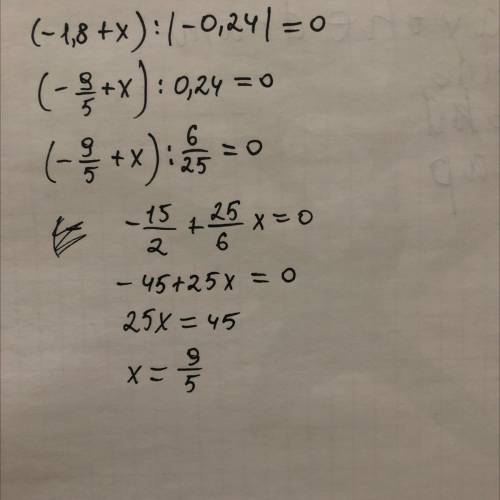 (-1,8+x):|-0,24|=0
(-9/5+x):0,24=0
(-9/5+x):6/25=0
-15/2+25/6x=0
-45+25x=0
25x=45
x=9/5